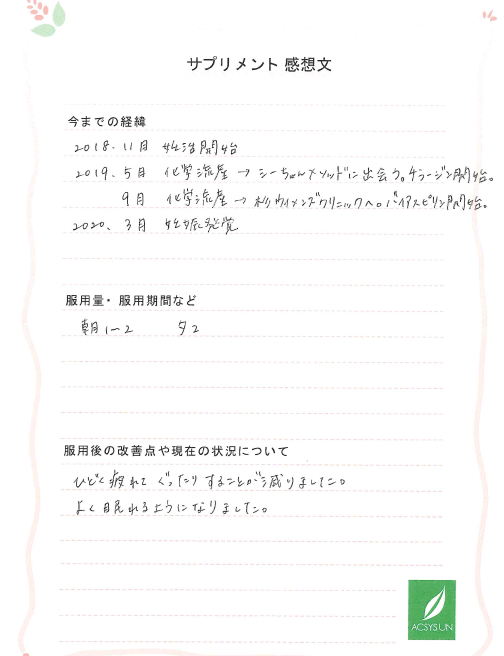 サプリメント 感想文
今までの経緯
2018.11月 妊活開始
2019.5月 化学流産→シーちゃんメソッドに出会う。チラージン開始。
9月 化学流産→杉ウイメンズクリニックへ。バイアスピリン開始。
2020.3月 妊娠発覚
服用量・服用期間など
朝1~2 夕2
服用後の改善点や現在の状況について
ひどく疲れてぐったりすることが減りました。
よく眠れるようになりました。
ACSYSUN